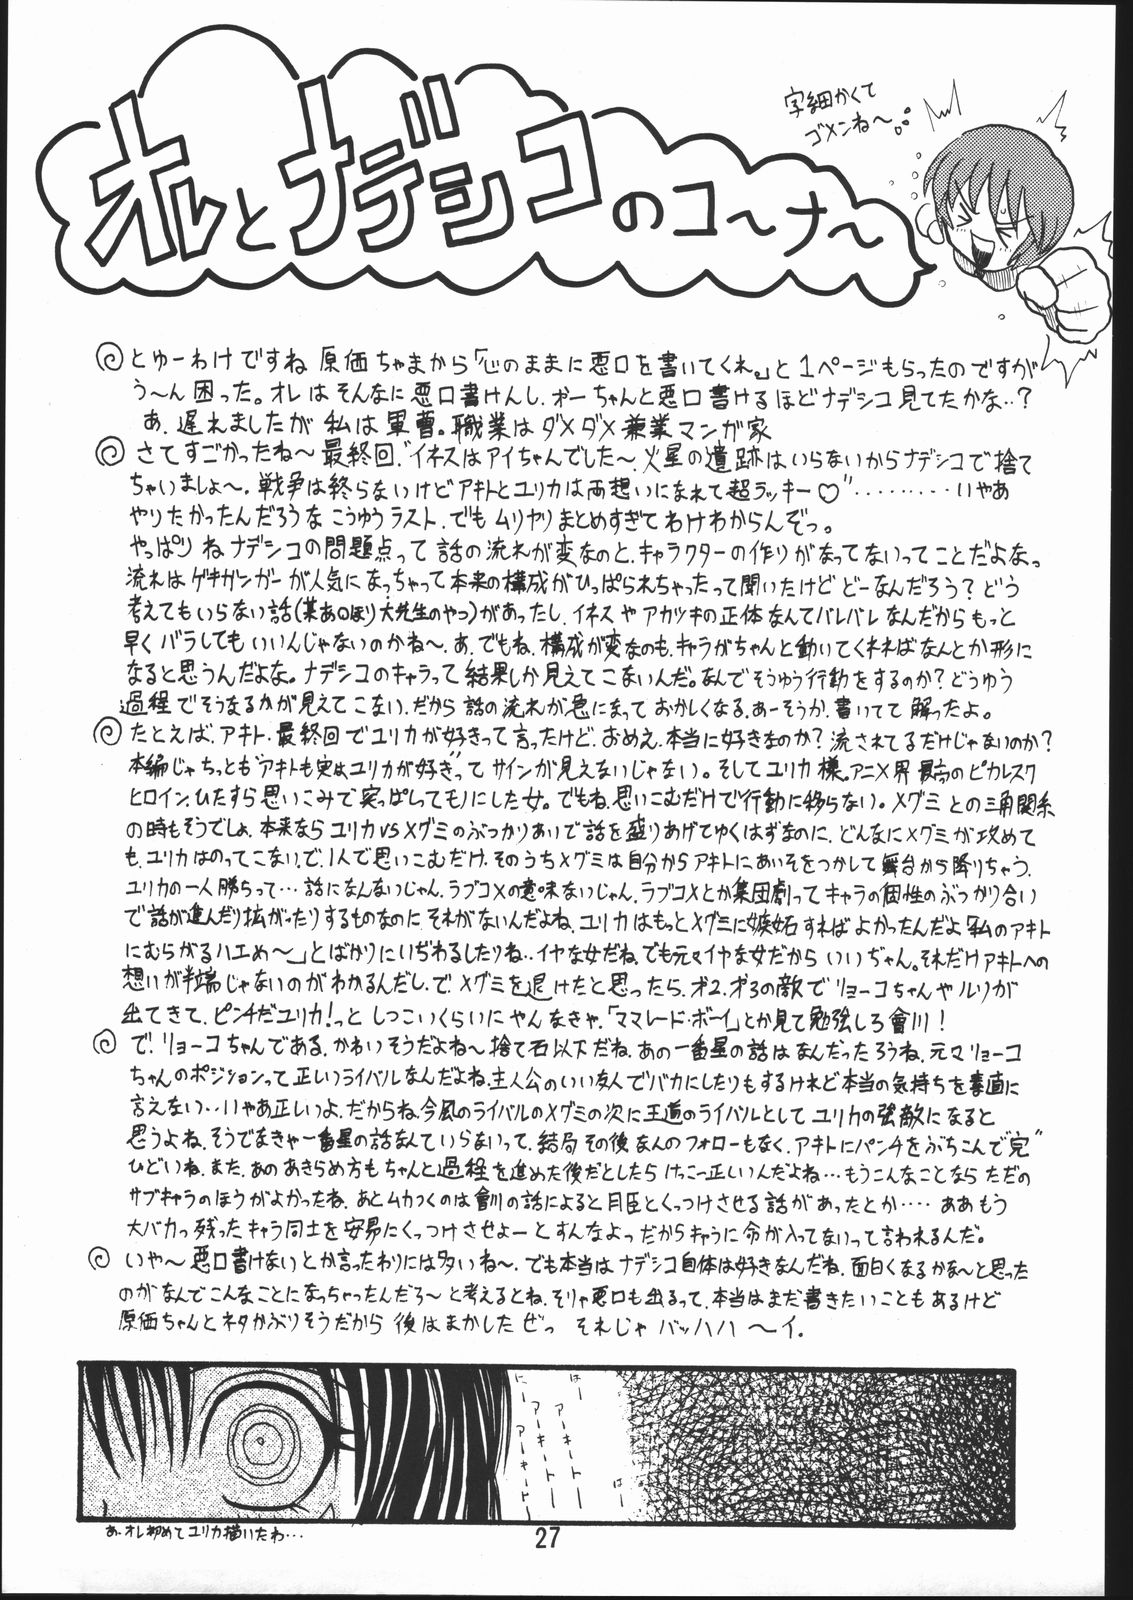 オレとナデシコのコ〜ナ〜
字細かくて
ゴメンね〜
とゆーわけですね 原価ちゃまから「心のままに悪口を書いてくれ。」と1ページもらったのですが
う〜ん困った。オレはそんなに悪口書けんし、ボーちゃんと悪口書けるほどナデシコ見てたかな‥?
あ、遅れましたが 私は軍曹。職業はダメダメ兼業マンガ家
さてすごかったね〜最終回、"イネスはアイちゃんでした〜、火星の遺跡はいらないからナデシコで捨て
ちゃいましょ〜、戦争は終らないけどアキトとユリカは両想いになれて超ラッキー♡"………いやあ
やりたかったんだろうな こうゆうラスト、でも ムリヤリまとめすぎてわけわからんぞっ。
やっぱりねナデシコの問題点って 話の流れが変なのと、キャラクターの作りがなってないってことだよなっ
流れはゲキガンガーが人気になっちゃって本来の構成がひっぱられちゃったって聞いたけど どーなんだろう?どう
考えてもいらない話(某あ○ほり大先生のやつ)があったし、イネスやアカツキの正体なんてバレバレなんだからもっと
早くバラしてもいいんじゃないのかね〜、あ、でもね、構成が変なのも、キャラがちゃんと動いてくれればなんとか形に
なると思うんだよな。ナデシコのキャラって結果しか見えてこないんだ。なんでそうゆう行動をするのか?どうゆう
過程でそうなるかが見えてこない、だから話の流れが急になって おかしくなる、あーそうか、書いてて解ったよ。
たとえば、アキト、最終回でユリカが好きって言ったけど、おめえ、本当に好きなのか?流されてるだけじゃないのか?
本編じゃちっとも"アキトも実はユリカが好き"って サインが見えないじゃない。そしてユリカ様。アニメ界最高のピカレスク
ヒロイン、ひたすら思いこみで突っぱしってモノにした女。でもね、思いこむだけで行動に移らない。メグミとの三角関係
の時もそうでしょ、本来なら ユリカVSメグミのぶつかりあいで話を盛りあげてゆくはずなのに、どんなにメグミが攻めて
も、ユリカはのってこない、で、1人で思いこむだけ、そのうちメグミは自分からアキトにあいそをつかして舞台から降りちゃう、
ユリカの一人勝ちって…話になんないじゃん、ラブコメの意味ないじゃん、ラブコメとか集団劇ってキャラの個性のぶつかり合い
で話が進んだり拡がったりするものなのに それがないんだよね、ユリカはもっとメグミに嫉妬すればよかったんだよ「私のアキト
にむらがるハエめ〜」とばかりにいぢわるしたりね‥イヤな女だね、でも元々イヤな女だからいいぢゃん。それだけアキトへの
想いが半端じゃないのがわかるんだし、で、メグミを退けたと思ったら、オ2、オ3の敵でリョーコちゃんやルリが
出てきて、ピンチだユリカ!っと しつこいくらいに やんなきゃ、「ママレード・ボーイ」とか見て勉強しろ會川!
で、リョーコちゃんである、かわいそうだよね〜捨て石以下だね、あの一番星の話はなんだったろうね、元々リョーコ
ちゃんのポジションって正しいライバルなんだよね、主人公のいい友人でバカにしたりもするけれど本当の気持ちを素直に
言えない‥いやあ正しいよ、だからね、今風のライバルのメグミの次に王道のライバルとしてユリカの強敵になると
思うよね、そうでなきゃ一番星の話なんていらないって、結局その後なんのフォローもなく、アキトにパンチをぶちこんで"完"
ひどいね、また、あのあきらめ方もちゃんと過程を進めた後だとしたら けっこー正しいんだよね…もうこんなことなら ただの
サブキャラのほうがよかったね、あとムカつくのは會川の話によると月臣とくっつけさせる話があったとか…‥ああもう
大バカっ残ったキャラ同士を安易にくっつけさせよーとすんなよっだからキャラに命が入ってないって言われるんだ。
いや〜悪口書けないとか言ったわりには多いね〜、でも本当はナデシコ自体は好きなんだね、面白くなるかな〜と思った
のがなんでこんなことになっちゃったんだろ〜と考えるとね、そりゃ悪口も出るって、本当はまだ書きたいこともあるけど
原価ちゃんとネタかぶりそうだから 後はまかしたぜっ それじゃ バッハハ〜イ.
はー
アーキートー
アーキートー
にー アーキートー
はー
あ、オレ初めてユリカ描いたわ…
27